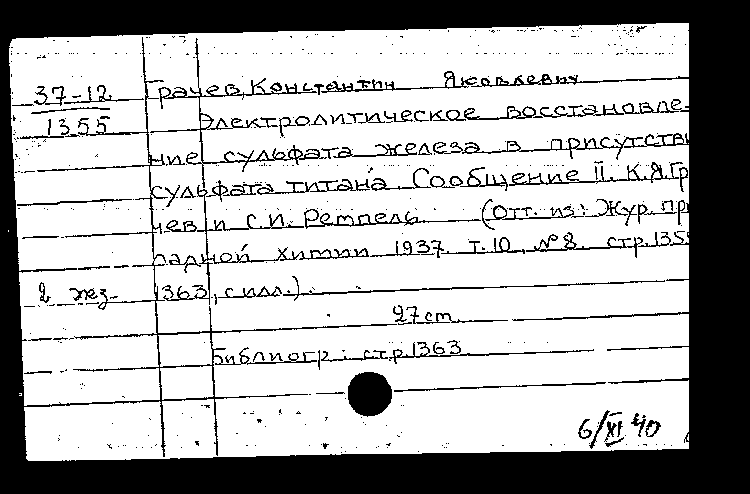 37-12 Грачев, Константин Яковлевич
1355 Электролитическое восстановле-
ние сульфата железа в присутстви
сульфата титана. Сообщение II. К.Я.Гр
чев и С.И. Ремпель. (Отт. из: Жур. при
ладной химии 1937. т.10, №8. стр.1355
2 экз. 1363, с илл.).
27cm.
Библиогр: стр.1363.
6/XI 40